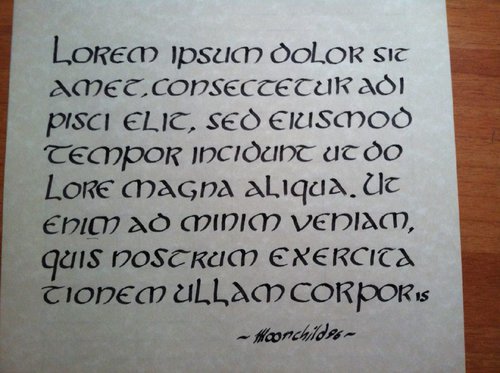 Lorem ipsum dolor sit
amet, consectetur adi
pisci elit, sed eiusmod
tempor incidunt ut do
lore magna aliqua. Ut
enim ad minim veniam,
quis nostrum exercita
tionem ullam corporis
~Moonchild96~